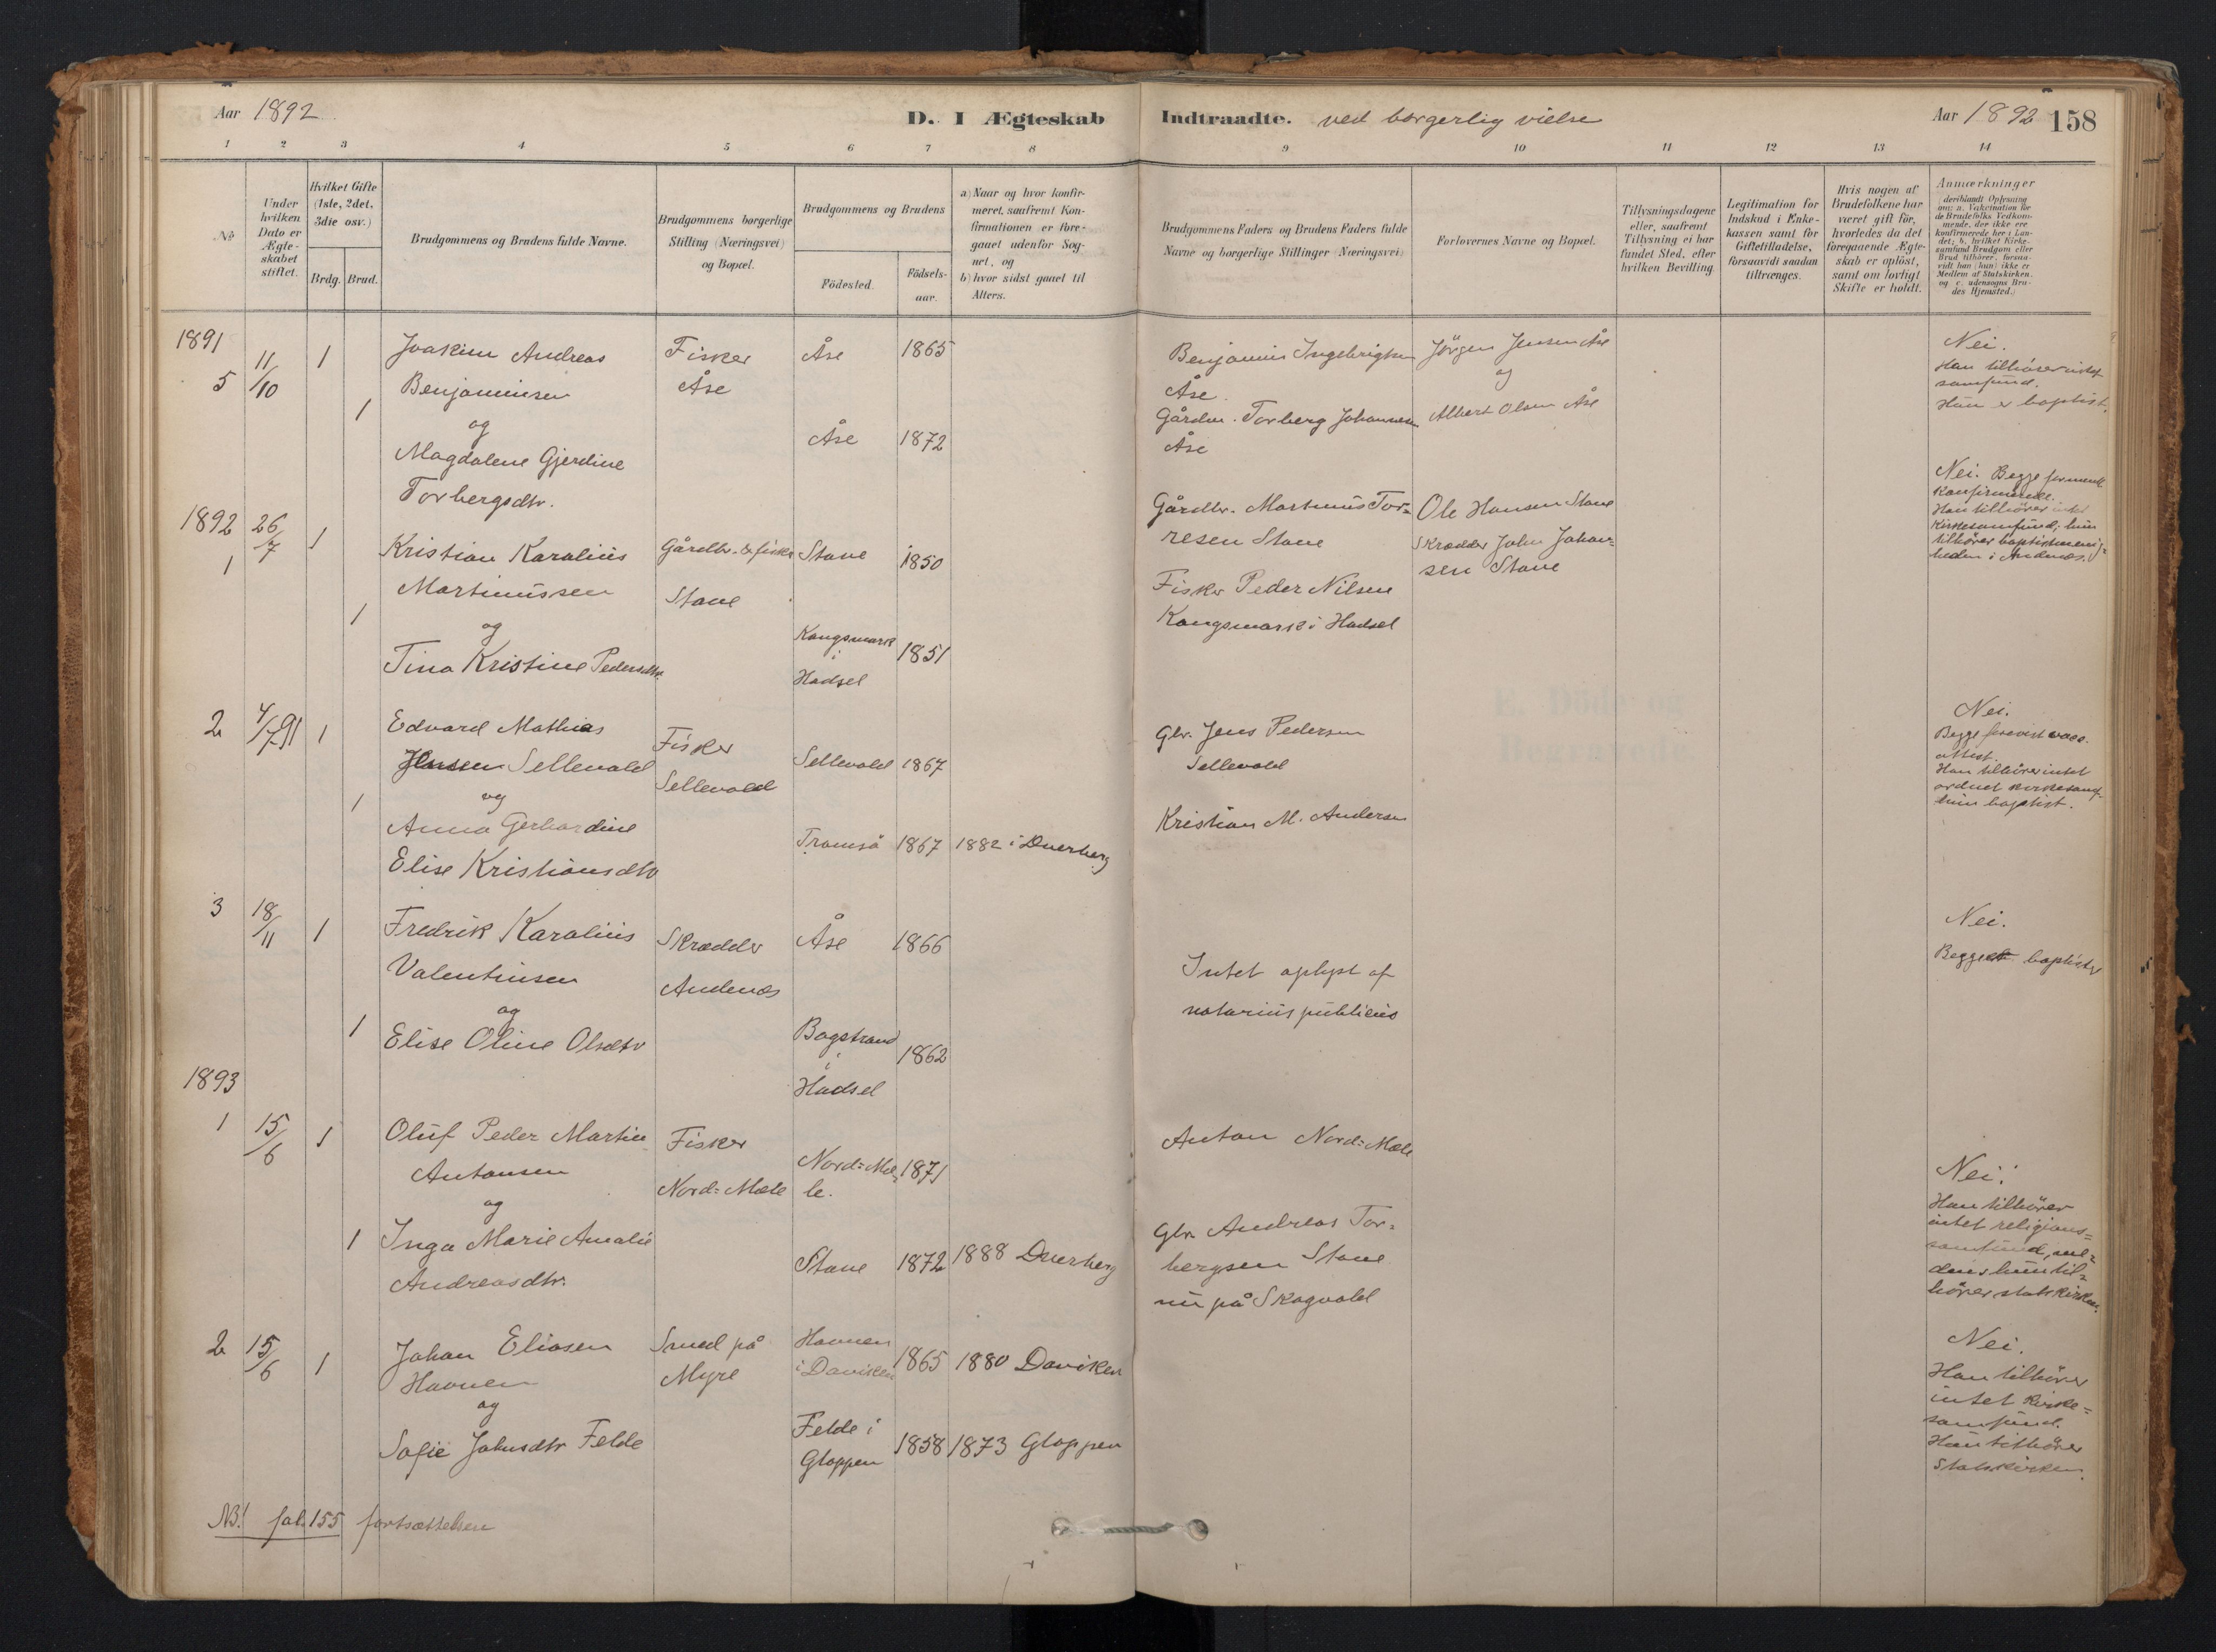 Aar 1892
D. I Ægteskab
Indtraadte. ved borgerlig vielse
Aar 1892 158
1 2 3 4 5 6 7 8 9 10 11 12 13 14
No
Under
hvilken
Dato er
Ægte-
skabet
stiftet.
Hvilket Gifte
(1ste, 2det,
3die osv.)
Brdg. Brud.
Brudgommens og Brudens fulde Navne.
Brudgommens borgerlige
Stilling (Næringsvei)
og Bopæl.
Brudgommens og Brudens
Födested.
Födsels-
aar.
a) Naar og hvor konfir-
meret, saafremt Kon-
firmationen er fore-
gaaet udenfor Sog-
net, og
b) hvor sidst gaaet til
Alters.
Brudgommens Faders og Brudens Faders fulde
Navne og borgerlige Stillinger (Næringsvei)
Forlovernes Navne og Bopæl.
Tillysningsdagene
eller, saafremt
Tillysning ei har
fundet Sted, efter
hvilken Bevilling.
Legitimation for
Indskud i Enke-
kassen samt for
Giftetilladelse,
forsaavidt saadan
tiltrænges.
Hvis nogen af
Brudefolkene har
været gift för,
hvorledes da det
foregaaende Ægte-
skab er oplöst,
samt om lovligt
Skifte er holdt.
Anmærkninger
deriblandt Oplysning
om: a. Vakcination for
de Brudefolks Vedkom-
mende, der ikke ere
konfirmerede her i Lan-
det; b. hvilket Kirke-
samfund Brudgom eller
Brud tilhører, forsaa-
vidt han (hun) ikke er
Medlem af Statskirken.
og c. udensogns Bru-
des Hjemsted.)
1891
5
11/10
1
Joakim Andreas
Benjaminsen
og
1
Magdalene Gjerdine
Torbergsdtr.
Fisker
Åse
Åse 1865
Åse 1872
Benjamin Ingebrigtsen
Åse.
Gårdm. Torberg Johannesen
Åse
Jörgen Jensen Åse
og
Albert Olsen Åse
Nei.
Han tilhörer intet
samfund.
Hun er baptist.
1892
1
26/7
1
Kristian Karolius
Martinussen
1
og
Tina Kristine Pedersdtr.
Gårdbr. & fisker
Stave
Stave 1850
Kongsmark
i
Hadsel
1851
Gårdbr. Martinus Tor-
resen Stave
Fisker Peder Nilsen
Kongsmark i Hadsel
Ole Hansen Stave
Skrædder John Johan-
sen Stave
Nei. Begge
konfirmerede.
Han tilhörer intet
kirkesamfund; hun
tilhører baptistmenig-
heden i Andenæs.
2
4/7 91
1
Edvard Mathias
Jensen Sellevold
og
1
Anna Gerhardine
Elise Kristiansdtr
Fisker
Sellevold
Sellevold 1867
Tromsö 1867 1882 i Dverberg
Gbr. Jens Pedersen
Sellevold
Kristian M. Andersen
Nei.
Begge forevist vacc.
attest.
Han tilhörer intet
ordnet kirkesamf.
hun baptist.
3
18/11
1
Fredrik Karolius
Valentinsen
og
1
Elise Oline Olsdtr
Skrædder
Andenæs
Åse 1866
Bogstrand
i
Hadsel
1862
Intet oplyst af
notarius publicus
Nei.
Begge baptister
1893
1
15/6
1
Oluf Peder Martin
Antonsen
og
1
Inga Marie Amalie
Andreasdtr.
Fisker
Nord-Mæle
Nord-Mæ-
le.
1871
Stave 1872 1888 Dverberg
Anton Nord-Mæle
Gbr. Andreas Tor-
bergsen Stave
nu på Skogvold
Nei.
Han tilhörer
intet religions-
samfund, me-
dens hun til-
hörer statskirken.
2
15/6
1
Johan Eliasen
Havnen
og
Sofie Johnsdtr Felde
Smed på
Myre
Havnen
i Daviken
1865 1880 Daviken
Felde i
Gloppen
1858 1873 Gloppen
Nei.
Han tilhörer
intet kirke-
samfund.
Hun tilhörer
Statskirken.
NB! fol. 155 fortsættelsen